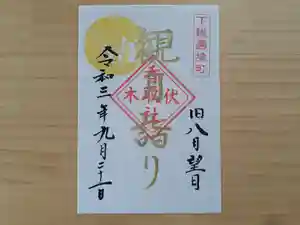 下総國境町
旧八月望日
観月詣り
香取社
伏木
令和三年九月二十一日